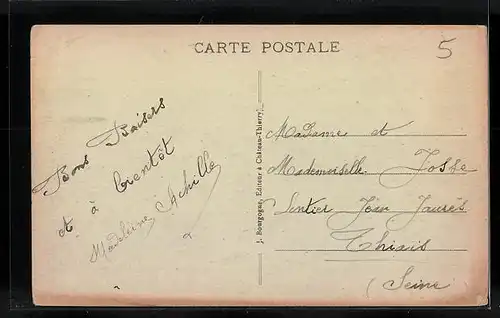 CARTE POSTALE
5
Bons Baisers
et à bientôt
Madeleine Achille
J. Bourgogne, Editeur à Château-Thierry
Madame et
Mademoiselle Josse
Sentier Jean Jaurès
Thiais
(Seine)